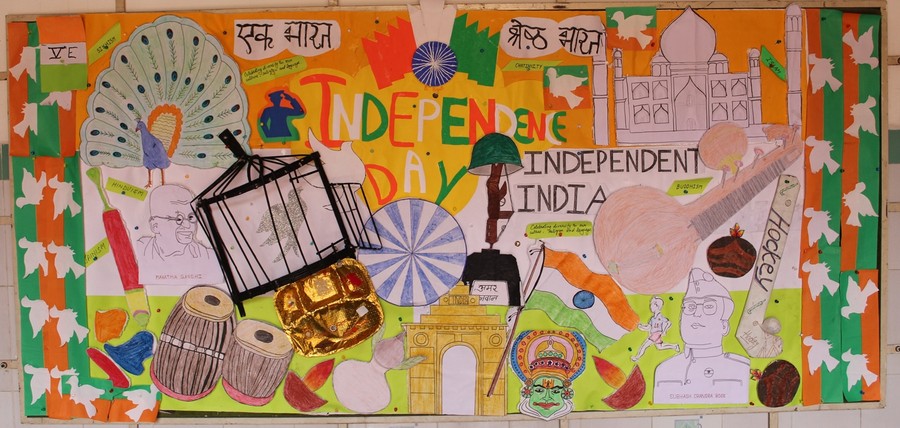 V E
एक भारत
श्रेष्ठ भारत
INDEPENDENCE
DAY
INDEPENDENT
INDIA
HINDUISM
BUDDHISM
MAHATMA GANDHI
Hockey
अमर
जवान
SUBHASH CHANDRA BOSE